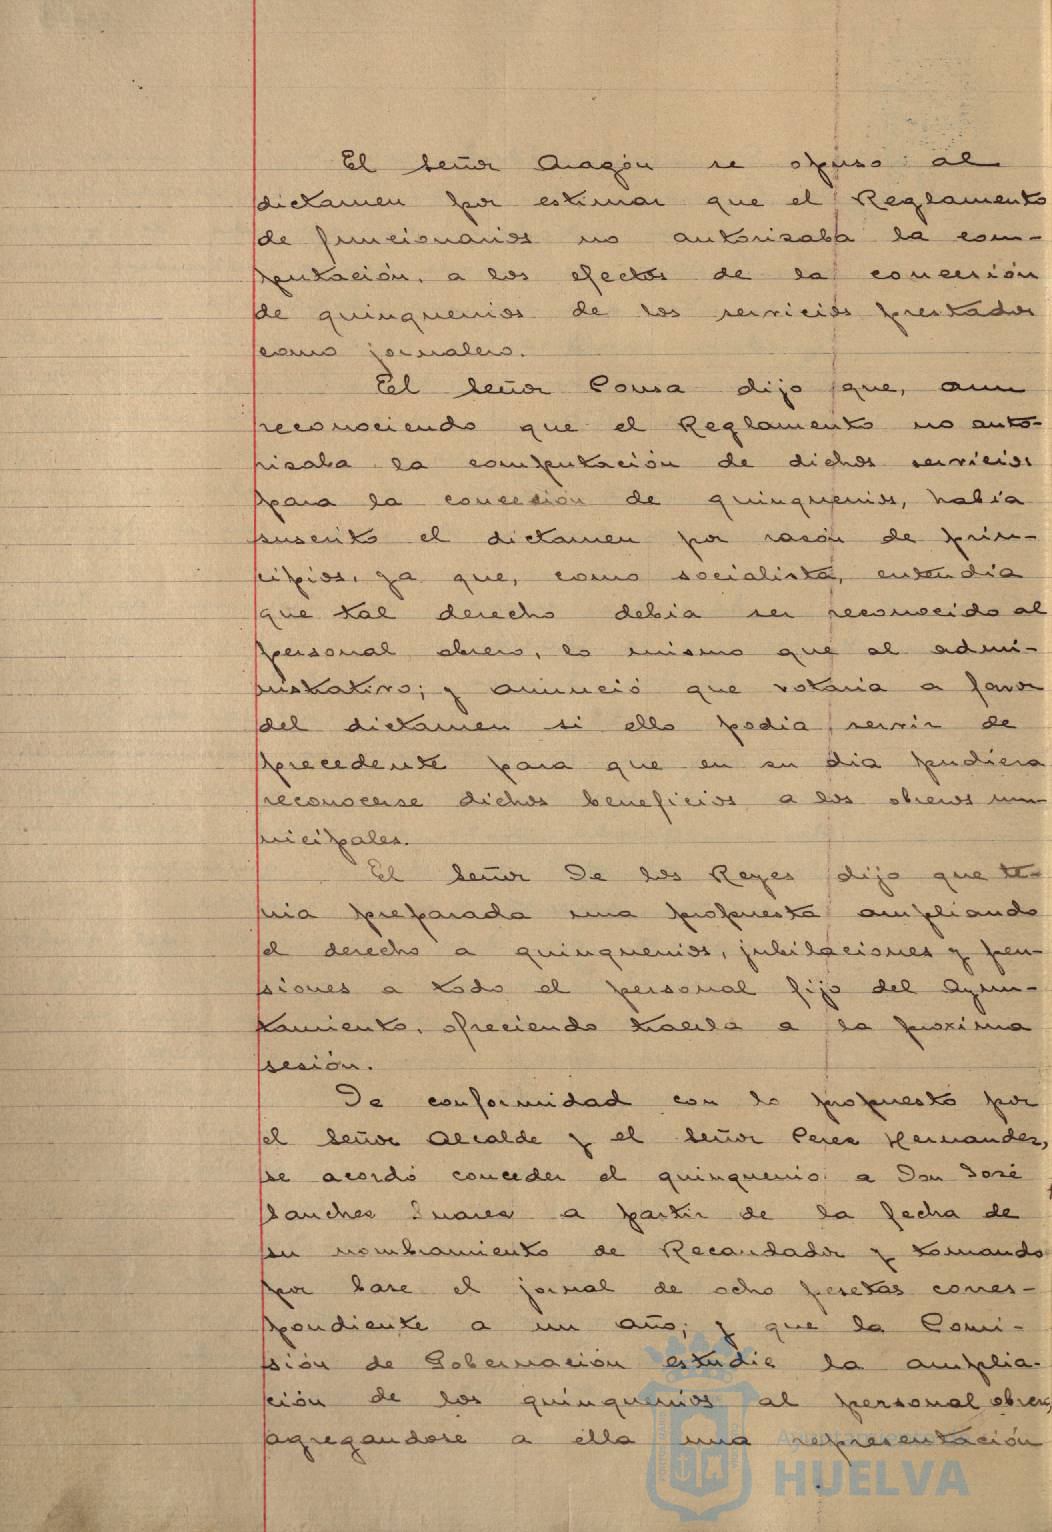 El Señor Aragón se opuso al
dictamen por estimar que el Reglamento
de funcionarios no autorizaba la com-
putación, a los efectos de la concesión
de quinquenios de los servicios prestados
como jornalero.
El Señor Ponsa dijo que, aun
reconociendo que el Reglamento no auto-
rizaba la computación de dichos servicios
para la concesión de quinquenios, había
suscrito el dictamen por razón de prin-
cipios, ya que, como socialista, entendia
que tal derecho debia ser reconocido al
personal obrero, lo mismo que al admi-
nistrativo; y anunció que votaria a favor
del dictamen si ello podia servir de
precedente para que en su dia pudiera
reconocerse dichos beneficios a los obreros mu-
nicipales.
El Señor De los Reyes dijo que te-
nia preparada una propuesta ampliando
el derecho a quinquenios, jubilaciones y pen-
siones a todo el personal fijo del Ayun-
tamiento, ofreciendo traerla a la proxima
sesión.
De conformidad con lo propuesto por
el Señor Alcalde y el Señor Perez Hernandez,
se acordó conceder el quinquenio a Don José
Sanchez Suarez a partir de la fecha de
su nombramiento de Recaudador y tomando
por base el jornal de ocho pesetas corres-
pondiente a un año; y que la Comi-
sión de Gobernación estudie la amplia-
ción de los quinquenios al personal obrero,
agregandose a ella una representación
HUELVA